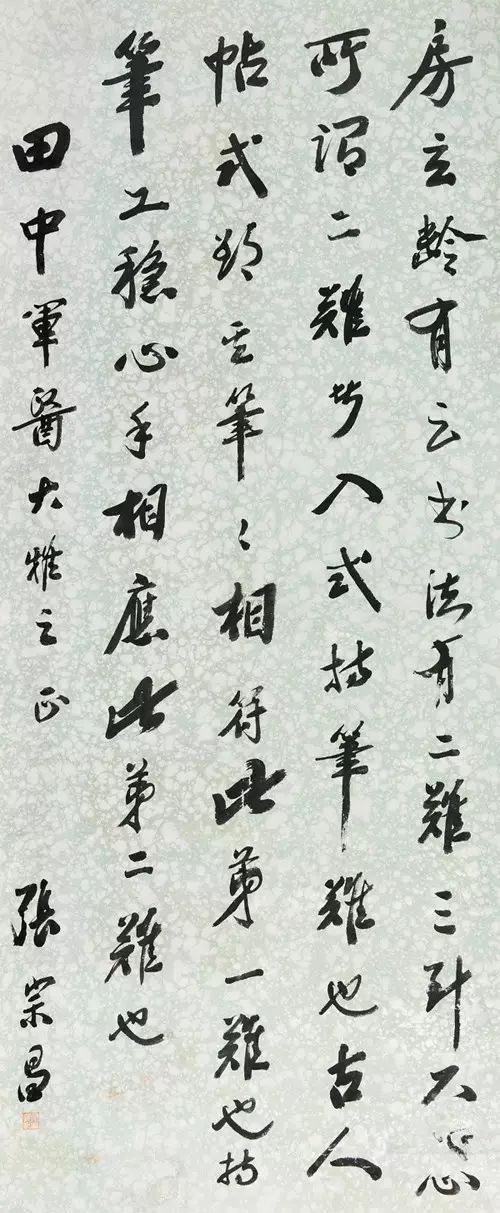 房玄齡有云书法有二難三大忌
所謂二難入式持筆難也古人
帖式筆〻相符此第一難也持
筆工穩心手相應此第二難也
田中軍醫大雅之正
張宗昌